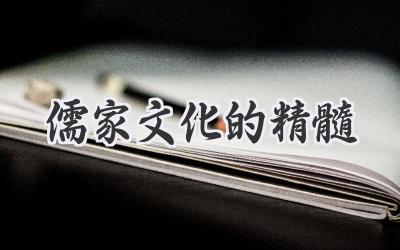 儒家文化的精髓